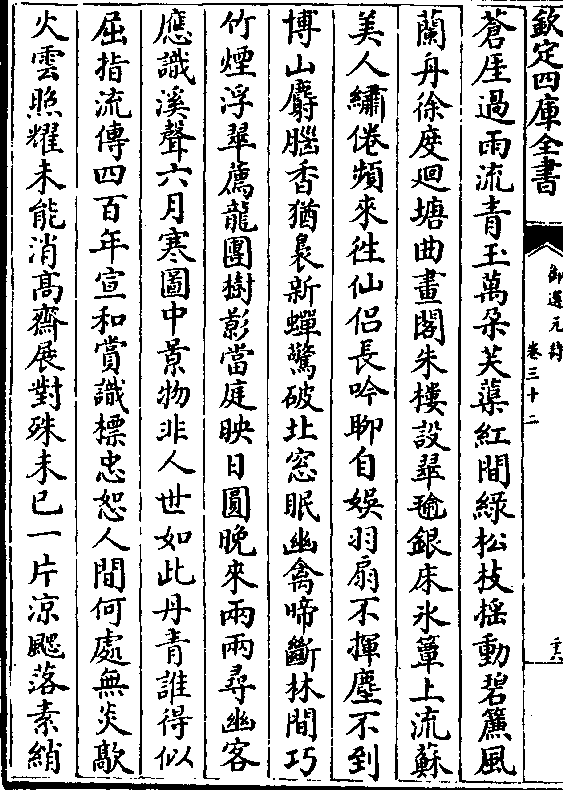 欽定四庫全書
御選元詩
卷三十二
二十八
蒼厓過雨流青玉萬朶芙蕖紅間綠松枝揺動碧簾風
蘭舟徐度迴塘曲畫閣朱樓設翠瓊銀床氷簟上流蘇
美人繡倦頻來徃仙侣長吟聊自娱羽扇不揮塵不到
博山麝腦香猶裊新蟬驚破北窓眠幽禽啼斷林間巧
竹煙浮翠薦龍團樹影當庭映日圓晚來兩兩尋幽客
應識溪聲六月寒圖中景物非人世如此丹青誰得似
屈指流傳四百年宣和賞識標忠恕人間何處無炎歊
火雲照耀未能消髙齋展對殊未已一片凉颸落素綃